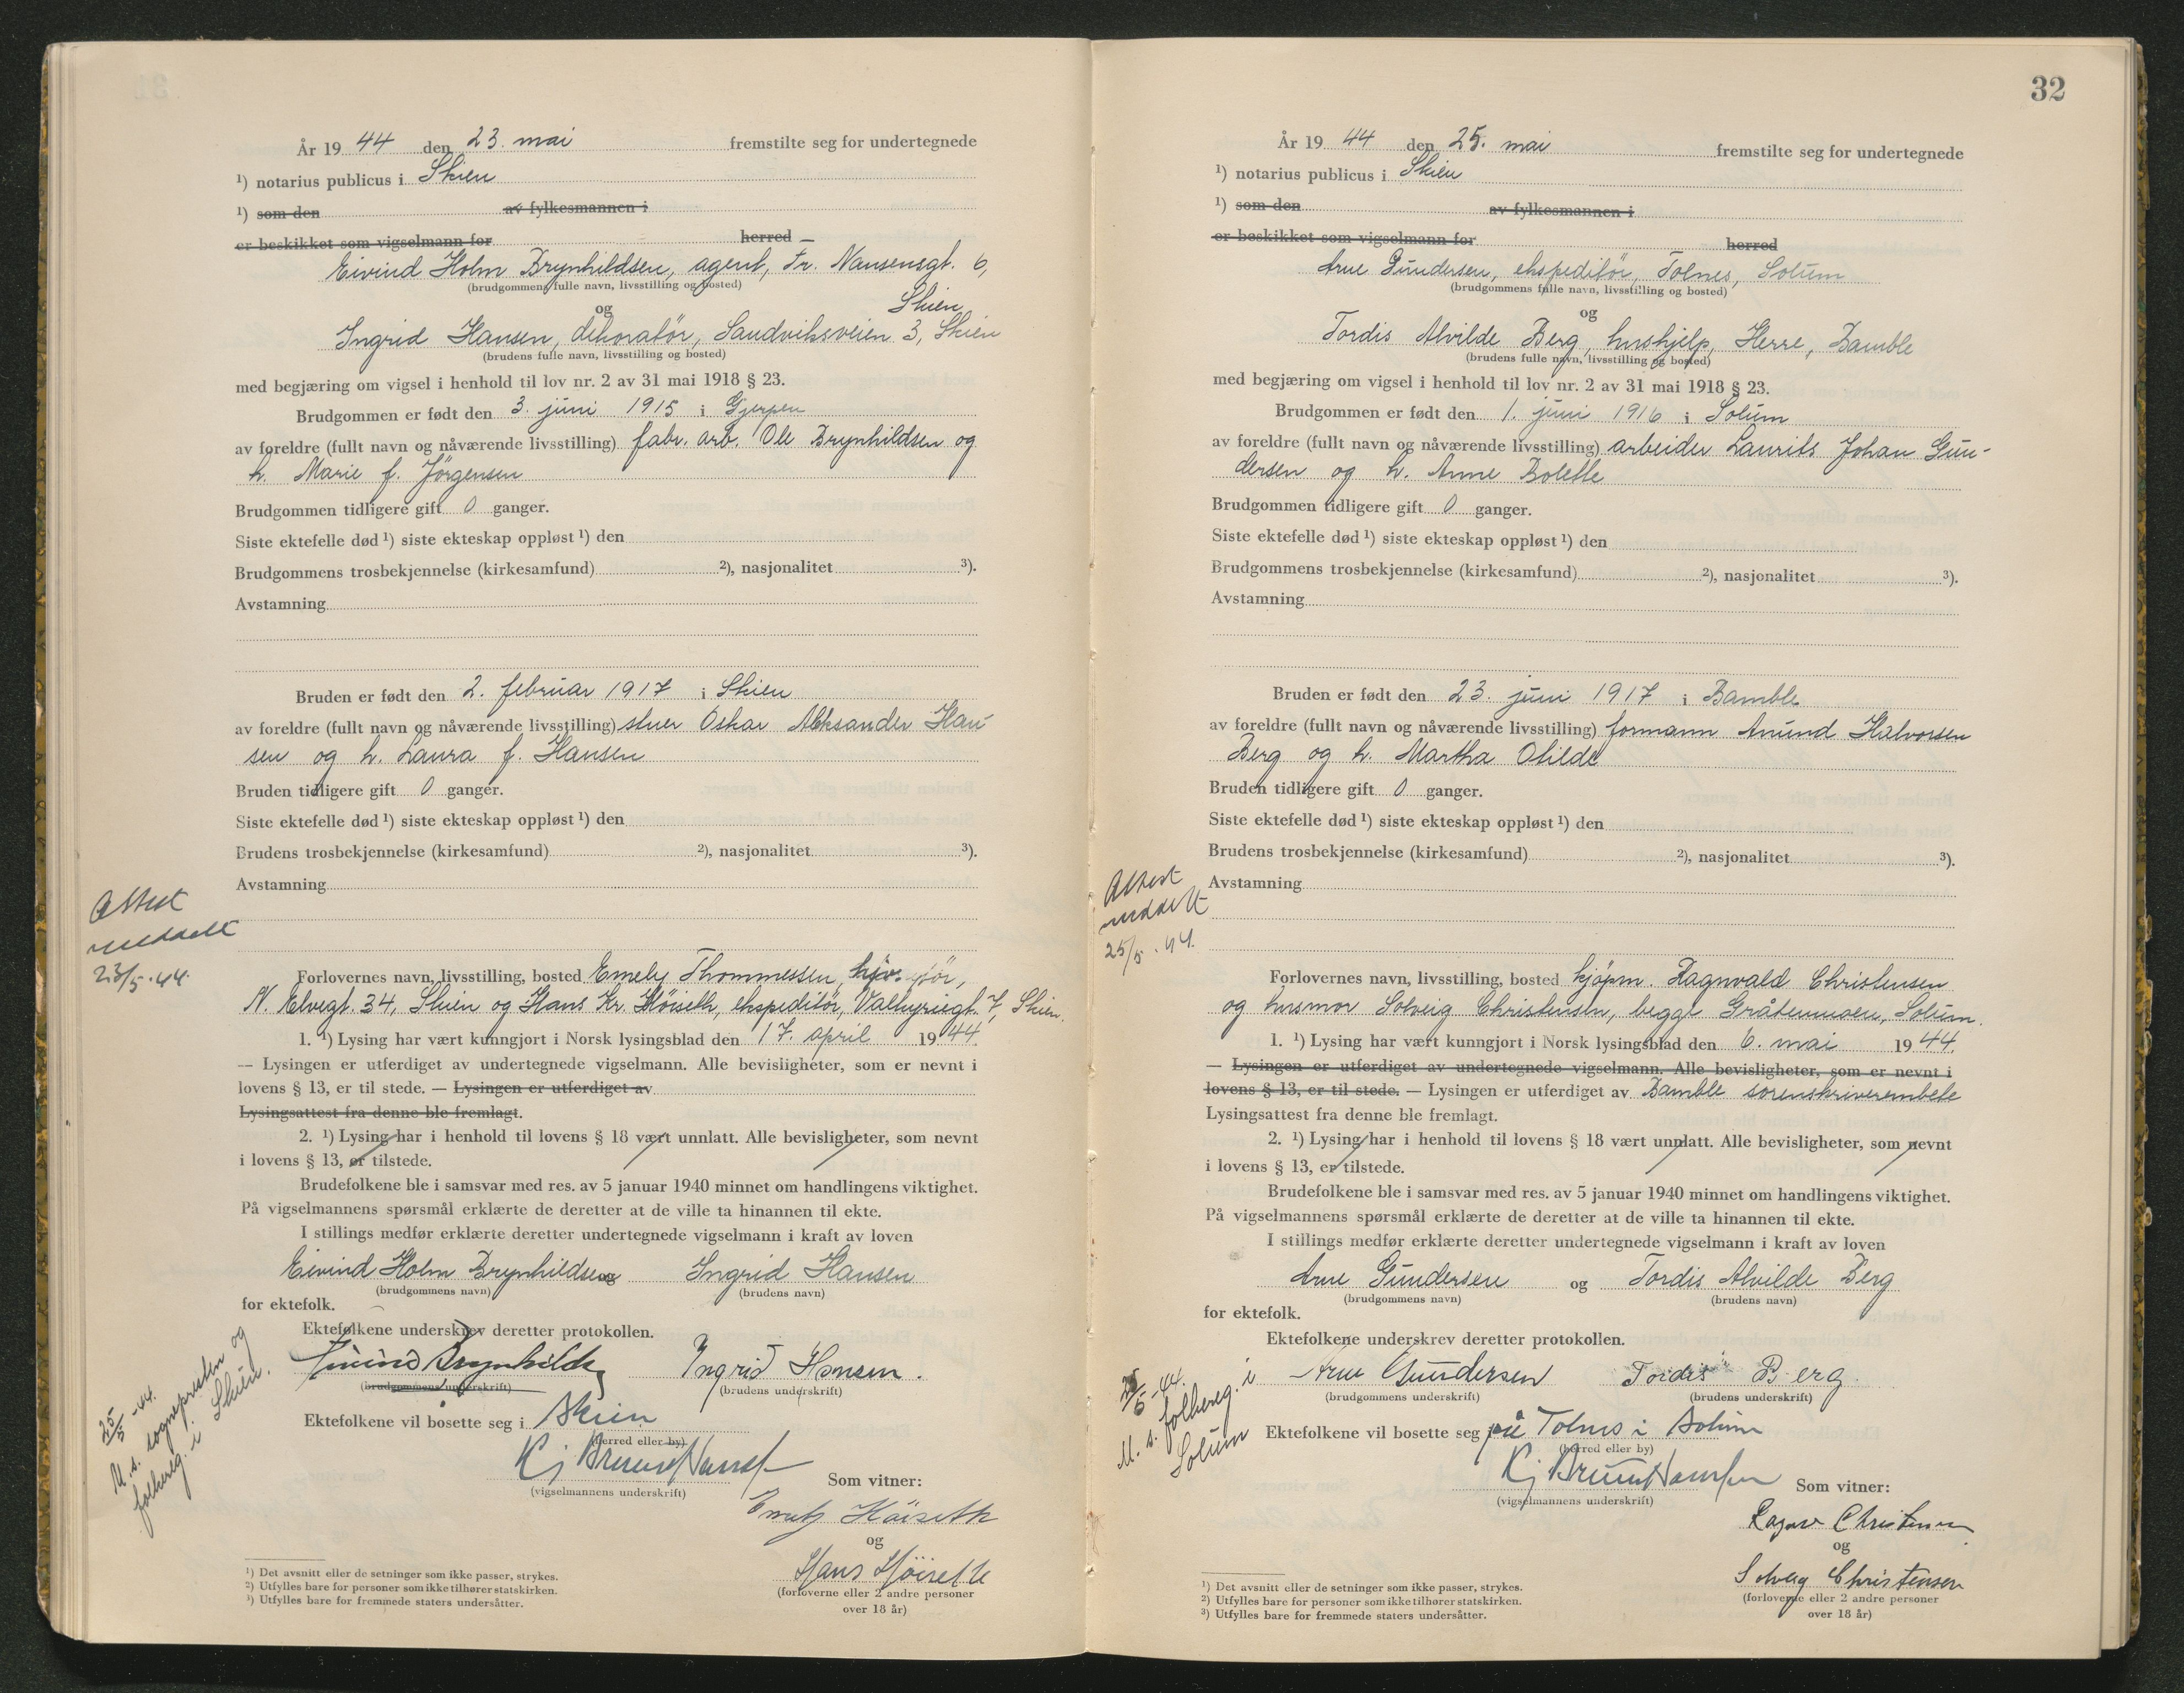 År 19 44 den 23. mai fremstilte seg for undertegnede
¹) notarius publicus i Skien
¹) som den av fylkesmannen i
er beskikket som vigselmann for herred
Eivind Holm Brynhildsen, agent, Fr. Nansensgt. 6,
(brudgommens fulle navn, livsstilling og bosted)
Skien
og
Ingrid Hansen, dekoratör, Sandviksveien 3, Skien
(brudens fulle navn, livsstilling og bosted)
med begjæring om vigsel i henhold til lov nr. 2 av 31 mai 1918 § 23.
Brudgommen er født den 3. juni 1915 i Gjerpen
av foreldre (fullt navn og nåværende livsstilling) fabr. arb. Ole Brynhildsen og
h. Marie f. Jörgensen
Brudgommen tidligere gift 0 ganger.
Siste ektefelle død ¹) siste ekteskap oppløst ¹) den
Brudgommens trosbekjennelse (kirkesamfund) ²), nasjonalitet ³).
Avstamning
Bruden er født den 2. februar 1917 i Skien
av foreldre (fullt navn og nåværende livsstilling) stuer Oskar Aleksander Han-
sen og h. Laura f. Hansen
Bruden tidligere gift 0 ganger.
Siste ektefelle død ¹) siste ekteskap oppløst ¹) den
Brudens trosbekjennelse (kirkesamfund) ²), nasjonalitet ³).
Avstamning
Attest
meddelt
23/5.44.
Forlovernes navn, livsstilling, bosted Emely Thommessen,
N. Elvegt. 34, Skien og Hans Kr. Höiseth, ekspeditör, Valkyriegt. 7, Skien.
1. ¹) Lysing har vært kunngjort i Norsk lysingsblad den 17. april 1944.
— Lysingen er utferdiget av undertegnede vigselmann. Alle bevisligheter, som er nevnt i
lovens § 13, er til stede. — Lysingen er utferdiget av
Lysingsattest fra denne ble fremlagt.
2. ¹) Lysing har i henhold til lovens § 18 vært unnlatt. Alle bevisligheter, som nevnt
i lovens § 13, er tilstede.
Brudefolkene ble i samsvar med res. av 5 januar 1940 minnet om handlingens viktighet.
På vigselmannens spørsmål erklærte de deretter at de ville ta hinannen til ekte.
I stillings medfør erklærte deretter undertegnede vigselmann i kraft av loven
Eivind Holm Brynhildsen og Ingrid Hansen
(brudgommens navn) (brudens navn)
for ektefolk.
Ektefolkene underskrev deretter protokollen.
Eivind Brynhildsen Ingrid Hansen.
(brudgommens underskrift) (brudens underskrift)
Ektefolkene vil bosette seg i Skien
(herred eller by)
25/5-44.
M. s. sognepresten og
folkereg. i Skien.
Kj Bruun Hansen
(vigselmannens underskrift)
Som vitner:
Emely Höiseth
og
Hans Höiseth
(forloverne eller 2 andre personer
over 18 år)
¹) Det avsnitt eller de setninger som ikke passer, strykes.
²) Utfylles bare for personer som ikke tilhører statskirken.
³) Utfylles bare for fremmede staters undersåtter.
32
År 19 44 den 25. mai fremstilte seg for undertegnede
¹) notarius publicus i Skien
¹) som den av fylkesmannen i
er beskikket som vigselmann for herred
Arne Gundersen, ekspeditör, Tolnes, Solum
(brudgommens fulle navn, livsstilling og bosted)
og
Tordis Alvilde Berg, hushjelp, Herre, Bamble
(brudens fulle navn, livsstilling og bosted)
med begjæring om vigsel i henhold til lov nr. 2 av 31 mai 1918 § 23.
Brudgommen er født den 1. juni 1916 i Solum
av foreldre (fullt navn og nåværende livsstilling) arbeider Laurits Johan Gun-
dersen og h. Anne Bolette
Brudgommen tidligere gift 0 ganger.
Siste ektefelle død ¹) siste ekteskap oppløst ¹) den
Brudgommens trosbekjennelse (kirkesamfund) ²), nasjonalitet ³).
Avstamning
Bruden er født den 23. juni 1917 i Bamble
av foreldre (fullt navn og nåværende livsstilling) formann Anund Halvorsen
Berg og h. Martha Otilde
Bruden tidligere gift 0 ganger.
Siste ektefelle død ¹) siste ekteskap oppløst ¹) den
Brudens trosbekjennelse (kirkesamfund) ²), nasjonalitet ³).
Avstamning
Attest
meddelt
25/5.44.
Forlovernes navn, livsstilling, bosted kjöpm. Ragnvald Christensen
og husmor Solveig Christensen, begge Gråtenmoen, Solum.
1. ¹) Lysing har vært kunngjort i Norsk lysingsblad den 6. mai 1944.
— Lysingen er utferdiget av undertegnede vigselmann. Alle bevisligheter, som er nevnt i
lovens § 13, er til stede. — Lysingen er utferdiget av Bamble sorenskriverembete
Lysingsattest fra denne ble fremlagt.
2. ¹) Lysing har i henhold til lovens § 18 vært unnlatt. Alle bevisligheter, som nevnt
i lovens § 13, er tilstede.
Brudefolkene ble i samsvar med res. av 5 januar 1940 minnet om handlingens viktighet.
På vigselmannens spørsmål erklærte de deretter at de ville ta hinannen til ekte.
I stillings medfør erklærte deretter undertegnede vigselmann i kraft av loven
Arne Gundersen og Tordis Alvilde Berg
(brudgommens navn) (brudens navn)
for ektefolk.
Ektefolkene underskrev deretter protokollen.
Arne Gundersen Tordis Berg.
(brudgommens underskrift) (brudens underskrift)
Ektefolkene vil bosette seg på Tolnes i Solum
(herred eller by)
25/5-44.
M. s. folkereg. i
Solum
Kj Bruun Hansen
(vigselmannens underskrift)
Som vitner:
Ragnv Christensen
og
Solveig Christensen
(forloverne eller 2 andre personer
over 18 år)
¹) Det avsnitt eller de setninger som ikke passer, strykes.
²) Utfylles bare for personer som ikke tilhører statskirken.
³) Utfylles bare for fremmede staters undersåtter.